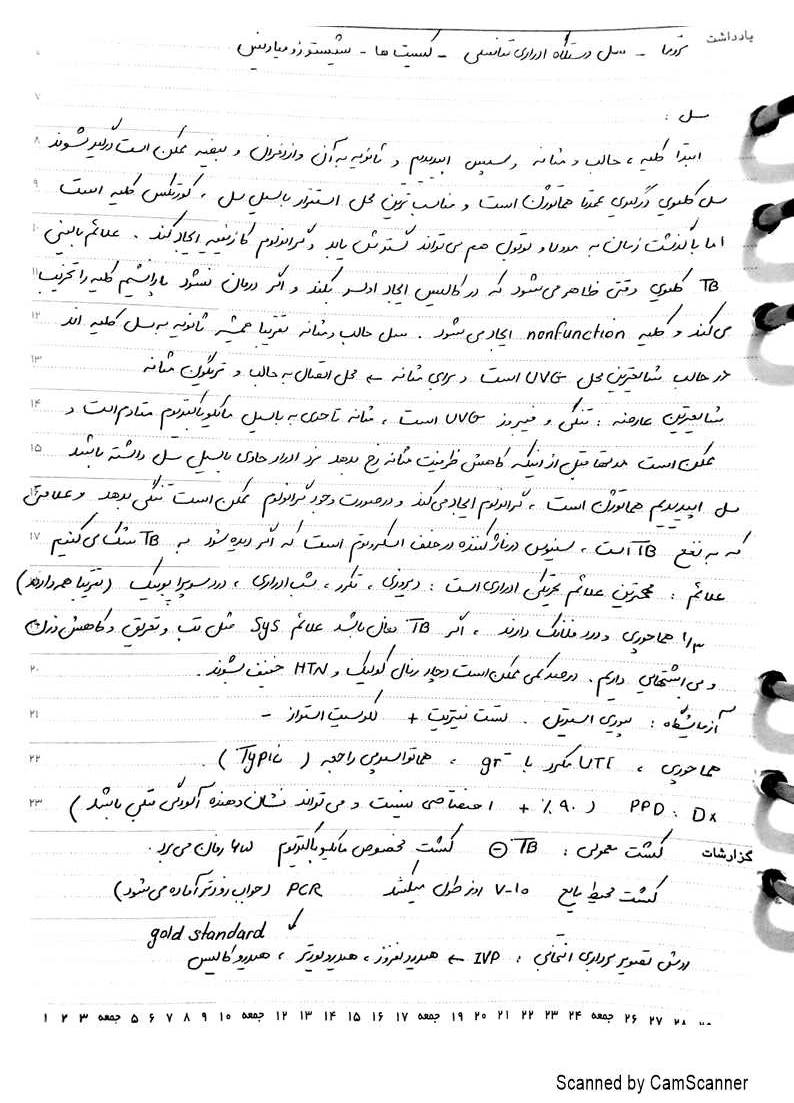 یادداشت
تروما - سل دستگاه ادراری تناسلی - کیست ها - شیستوزومیازیس
۷
سل :
۸ ابتدا کلیه ، حالب و مثانه و سپس اپیدیدیم و ثانویه به آن وازدفران و بیضه ممکن است درگیر شوند
۹ سل کلیوی درگیری عمدتا هماتوژن است و مناسب ترین محل استقرار باسیل سل ، کورتکس کلیه است
۱۰ اما با گذشت زمان به مدولا و توبول هم می تواند گسترش یابد و گرانولوم کازئیفیه ایجاد کند . علائم بالینی
۱۱ TB کلیوی وقتی ظاهر می شود که در کالیس ایجاد اولسر بکند و اگر درمان نشود پارانشیم کلیه را تخریب
۱۲ می کند و کلیه nonfunction ایجاد می شود . سل حالب و مثانه تقریبا همیشه ثانویه به سل کلیه اند
۱۳ در حالب شایعترین محل UVG است و برای مثانه ← محل اتصال به حالب و تریگون مثانه
۱۴ شایعترین عارضه : تنگی و فیبروز UVG است ، مثانه تا حدی به باسیل مایکوباکتریوم مقاوم است و
۱۵ ممکن است مدتها قبل از اینکه کاهش ظرفیت مثانه رخ بدهد فرد ادرار حاوی باسیل سل داشته باشد
۱۶ سل اپیدیدیم هماتوژن است ، گرانولوم ایجاد می کند و در صورت وجود گرانولوم ممکن است تنگی بدهد و علامتی
۱۷ که به نفع TB است ، سینوس درناژ کننده در خلف اسکروتوم است که اگر دیده شود به TB شک می کنیم
علائم : مهمترین علائم تحریکی ادراری است : دیزوری ، تکرر ، شب ادراری ، درد سوپراپوبیک (تقریبا همه دارند)
۱/۳ هماچوری و درد فلانک دارند ، اگر TB فعال باشد علائم Sys مثل تب و تعریق و کاهش وزن
۲۰ و بی اشتهایی داریم . درصد کمی ممکن است دچار رنال کولیک و HTN خفیف بشوند .
۲۱ آزمایشگاه : پیوری استریل . تست نیتریت + لکوسیت استراز -
۲۲ هماچوری ، UTI مکرر با gr⁻ ، هماتواسپرمی راجعه ( Typic ) .
۲۳ Dx : PPD ( ۹۰٪ + اختصاصی نیست و می تواند نشان دهنده آلودگی قبلی باشد )
گزارشات کشت معمولی : TB ⊖ کشت مخصوص مایکوباکتریوم ۶-۸w زمان می برد .
کشت محیط مایع ۷-۱۰ روز طول میکشد PCR (جواب زودتر آماده می شود)
gold standard
روش تصویر برداری انتخابی : IVP ← هیدرونفروز ، هیدرویورتر ، هیدروکالیس
۱ ۲ ۳ جمعه ۵ ۶ ۷ ۸ ۹ ۱۰ جمعه ۱۲ ۱۳ ۱۴ ۱۵ ۱۶ ۱۷ جمعه ۱۹ ۲۰ ۲۱ ۲۲ ۲۳ ۲۴ جمعه ۲۶ ۲۷ ۲۸
Scanned by CamScanner